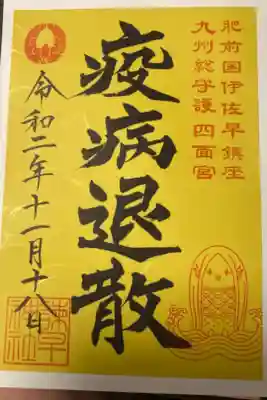 肥前国伊佐早鎮座
九州総守護四面宮
疫病退散
令和二年十一月十八日
諫早神社